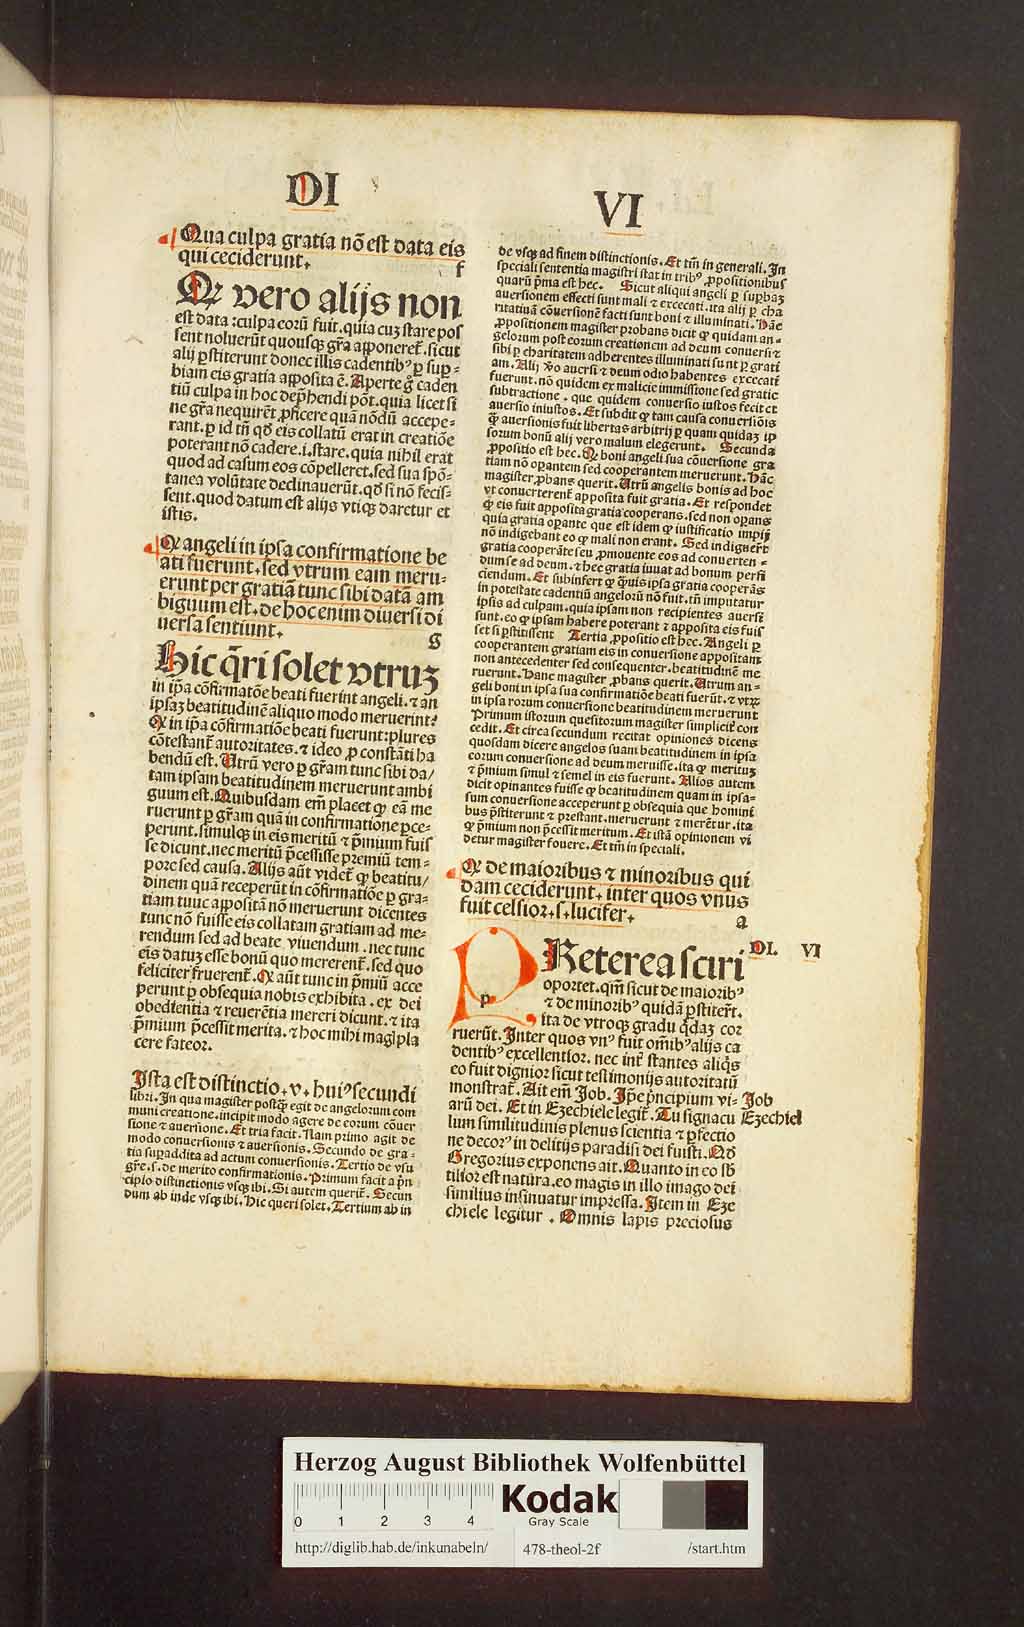 DI
VI
Qua culpa gratia nõ est data eis
qui ceciderunt. f
Qꝫ vero alijs non
est data : culpa eorũ fuit . quia cuꝫ stare pos
sent noluerũt quousqꝫ gr̃a apponeret᷑ . sicut
alij ꝑstiterunt donec illis cadentibꝰ ꝑ sup⸗
biam eis gratia apposita ẽ. Aperte g̊ caden
tiũ culpa in hoc dep̃hendi põt. quia licet si
ne gr̃a nequirẽt ꝓficere quã nõdũ accepe⸗
rant. ꝑ id tñ qd̃ eis collatũ erat in creatiõe
poterant nõ cadere .i. stare. quia nihil erat
quod ad casum eos cõpelleret. sed sua spõ⸗
tanea volũtate declinauerũt. qd̃ si nõ fecis⸗
sent. quod datum est alijs vtiqꝫ daretur et
istis.
Qꝫ angeli in ipsa confirmatione be
ati fuerunt. sed vtrum eam meru⸗
erunt per gratiã tunc sibi datã am
biguum est. de hoc enim diuersi di
uersa sentiunt. g
Hic q̃ri solet vtruꝫ
in ip̃a cõfirmatõe beati fuerint angeli. ⁊ an
ipsaꝫ beatitudinẽ aliquo modo meruerint?
Qꝫ in ip̃a cõfirmatiõe beati fuerunt: plures
cõtestant᷑ autoritates. ⁊ ideo ꝓ constãti ha
bendũ est. Utrũ vero ꝑ gr̃am tunc sibi da/
tam ipsam beatitudinem meruerunt ambi
guum est. Quibusdam em̃ placet ꝙ eã me
ruerunt ꝑ gr̃am quã in confirmatione ꝑce⸗
perunt. simulqꝫ in eis meritũ ⁊ p̃mium fuis
se dicunt. nec meritũ p̃cessisse premiũ tem⸗
pore sed causa. Alijs aũt videt᷑ ꝙ beatitu/
dinem quã receperũt in cõfirmatiõe ꝑ gra⸗
tiam tunc appositã nõ meruerunt dicentes
tunc nõ fuisse eis collatam gratiam ad me⸗
rendum sed ad beate viuendum . nec tunc
eis datuꝫ esse bonũ quo mererent᷑. sed quo
feliciter fruerent᷑. Qꝫ aũt tunc in p̃miũ acce
perunt ꝑ obsequia nobis exhibita . ex dei
obedientia ⁊ reuerẽtia mereri dicunt. ⁊ ita
p̃mium p̃cessit merita. ⁊ hoc mihi magꝭ pla
cere fateor.
Ista est distinctio .v. huiꝰ secundi
libri. In qua magister postqꝫ egit de angelorum com
muni creatione. incipit modo agere de eorum cõuer
sione ⁊ auersione. Et tria facit. Nam primo agit de
modo conuersionis ⁊ auersionis. Secundo de gra⸗
tia suꝑaddita ad actum conuersionis. Tertio de vsu
gr̃e .s. de merito confirmationis. Primum facit a p̃n
cipio distinctionis vsqꝫ ibi. Si autem querit᷑. Secun
dum ab inde vsqꝫ ibi. Hic queri solet. Tertium ab in
de vsqꝫ ad finem distinctionis. Et tm̃ in generali. In
speciali sententia magistri stat in tribꝰ ꝓpositionibus
quarũ p̃ma est hec. Sicut aliqui angeli ꝑ suꝑbiaꝫ
auersionem effecti sunt mali ⁊ excecati. ita alij ꝑ cha
ritatiuã cõuersionẽ facti sunt boni ⁊ illuminati. Hãc
ꝓpositionem magister ꝓbans dicit ꝙ quidam an⸗
gelorum post eorum creationem ad deum conuersi ⁊
sibi ꝑ charitatem adherentes illuminati sunt ꝑ grati
am. Alij v̊o auersi ⁊ deum odio habentes excecati
fuerunt. nõ quidem ex malicie immissione sed gratie
subtractione . que quidem conuersio iustos fecit et
auersio iniustos. Et subdit ꝙ tam causa conuersiõis
qꝫ auersionis fuit libertas arbitrij ꝑ quam quidaꝫ ip
sorum bonũ alij vero malum elegerunt. Secunda
ꝓpositio est hec. Qꝫ boni angeli sua cõuersione gra
tiam nõ oꝑantem sed cooperantem meruerunt. Hãc
magister ꝓbans querit. Utrũ angelis bonis ad hoc
vt conuerterent᷑ apposita fuit gratia. Et respondet
ꝙ eis fuit apposita gratia cooperans. sed non oꝑans
quia gratia oꝑante que est idem ꝙ iustificatio impij
nõ indigebant eo ꝙ mali non erant. Sed indiguer̃t
gratia cooperãte seu ꝓmouente eos ad conuerten⸗
dum se ad deum. ⁊ hec gratia iuuat ad bonum perfi
ciendum. Et subinfert ꝙ qꝫuis ipsa gratia cooperãs
in potestate cadentiũ angelorũ nõ fuit. tñ imputatur
ipsis ad culpam. quia ipsam non recipientes auersi
sunt. eo ꝙ ipsam habere poterant ⁊ apposita eis fuis
set si ꝑstitissent Tertia ꝓpositio est hec. Angeli ꝑ
cooperantem gratiam eis in conuersione appositam
non antecedenter sed consequenter. beatitudinẽ me
ruerunt. Hanc magister ꝓbans querit. Utrum an⸗
geli boni in ipsa sua confirmatiõe beati fuerũt. ⁊ vtꝝ
in ipsa eorum conuersione beatitudinem meruerunt
Primum istorum quesitorum magister simplicit᷑ con
cedit. Et circa secundum recitat opiniones dicens
quosdam dicere angelos suam beatitudinem in ipsa
eorum conuersione ad deum meruisse. ita ꝙ meritũ
⁊ p̃mium simul ⁊ semel in eis fuerunt. Alios autem
dicit opinantes fuisse ꝙ beatitudinem quam in ipsa⸗
sum conuersione acceperunt ꝑ obsequia que homini
bus p̃stiterunt ⁊ prestant. meruerunt ⁊ merẽtur. ita
ꝙ p̃mium non p̃cessit meritum. Et istã opinionem vi
detur magister fouere. Et tm̃ in speciali.
Qꝫ de maioribus ⁊ minoribus qui
dam ceciderunt. inter quos vnus
fuit celsior .s. lucifer. a
PReterea sciri
DI. VI
oportet. qm̃ sicut de maioribꝰ
p
⁊ de minoribꝰ quidã ꝑstiter̃t.
ita de vtroqꝫ gradu q̃daꝫ cor
ruerũt. Inter quos vnꝰ fuit om̃ibꝰ alijs ca
dentibꝰ excellentior. nec int᷑ stantes aliq̃s
eo fuit dignior sicut testimonijs autoritatũ
monstrat᷑. Ait em̃ Job. Ip̃e p̃ncipium vi⸗
Job
arũ dei. Et in Ezechiele legit᷑. Tu signacu
Ezechiel
lum similitudinis plenus scientia ⁊ ꝑfectio
ne decorꝰ in delitijs paradisi dei fuisti. Qd̃
Gregorius exponens ait. Quanto in eo sb̃
tilior est natura. eo magis in illo imago dei
similius insinuatur impressa. Item in Eze
chiele legitur . Omnis lapis preciosus
Herzog August Bibliothek Wolfenbüttel
0 1 2 3 4
Kodak
Gray Scale
http://diglib.hab.de/inkunabeln/ 478-theol-2f /start.htm